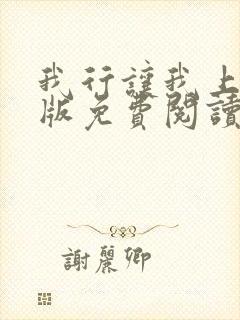 我行讓我上
版免費閱讀
謝麗卿